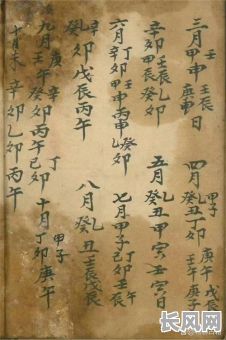 三月甲申
壬
壬辰
庚申日
四月
癸丑丁卯
甲子
庚午戊辰
壬午庚子
辛卯壬辰乙卯
甲辰癸卯
五月癸丑
甲寅壬寅日
六月
丁卯
辛卯
甲申丙申
癸卯
七月甲子
壬辰
卯戊辰丙午
八月癸丑
壬辰戊辰
九月壬午
癸卯丙午己卯
十月丁卯庚午
甲子
辛卯乙卯丙午
长风网